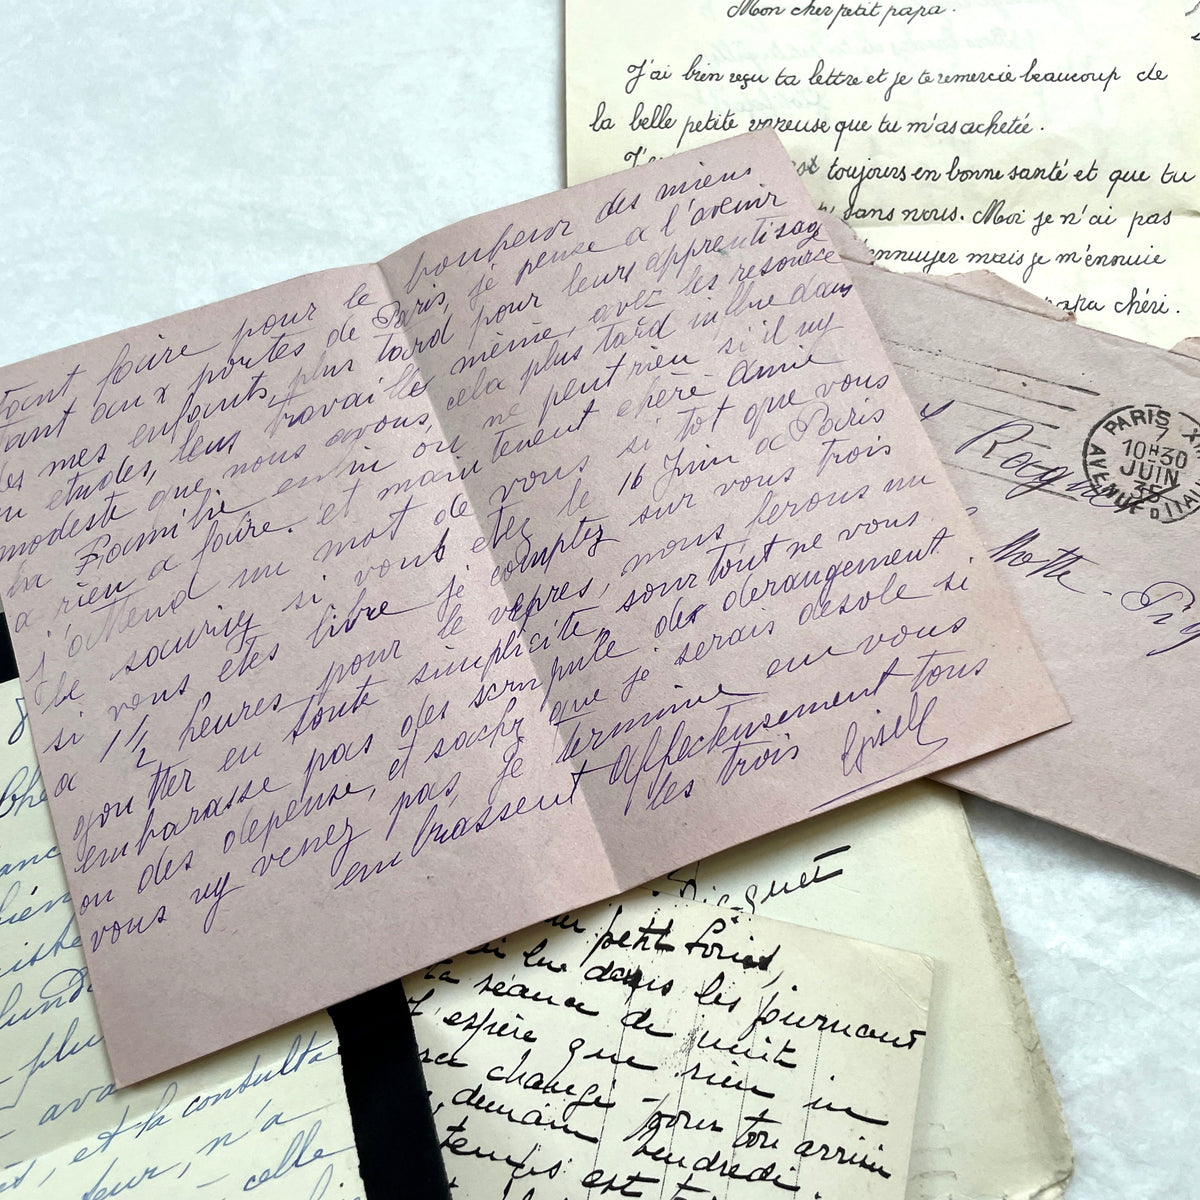 Mon cher petit papa.
J'ai bien reçu ta lettre et je te remercie beaucoup de
la belle petite vareuse que tu m'as achetée.
toujours en bonne santé et que tu
sans nous. Moi je n'ai pas
ennuyer mais je m'ennuie
papa chéri.
tant faire pour le bonheur des miens
tant aux portes de Paris, je pense a l'avenir
des mes enfants, plus tard pour leurs apprentisage
ou etudes, leur travail les même, avec les resource
modeste que nous avons, cela plus tard influe dans
la Famille enfin on ne peut rien si il ny
a rien a faire. et maintenent chère amie
j'attend un mot de vous si tot que vous
le saurez si vous etez le 16 Juin a Paris
si vous etes libre je comptez sur vous trois
a 1½ heures pour le vepres, nous ferons un
goutter en toute simplicite surtout ne vous
embarasse pas des scrupule des derangement
ou des depense, et sachez que je serais desole si
vous ny venez pas, je termine en vous
embrassent affectusement tous
les trois Gisell
PARIS X
7
10H30
JUIN
35
AVENUE D'ITA
Motte -
Chè
et la consulta
n'a
celle
petit Louis,
lu dans les journaux
la séance de nuit
J'espère que rien in
changé pour ton arrivée
demain Vendredi.
temps est